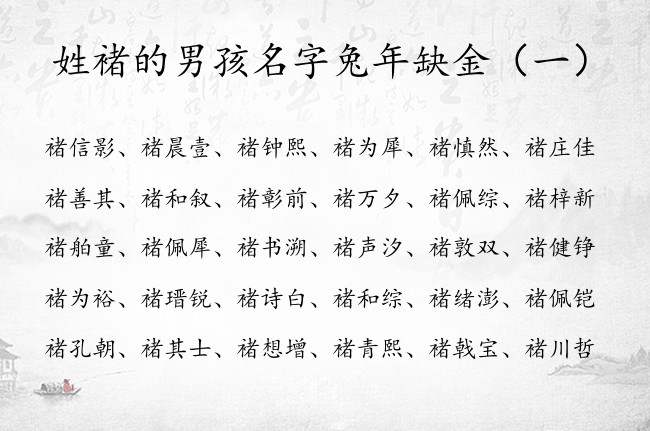 姓褚的男孩名字兔年缺金（一）
褚信影、褚晨壹、褚钟熙、褚为犀、褚慎然、褚庄佳
褚善其、褚和叙、褚彰前、褚万夕、褚佩综、褚梓新
褚舶童、褚佩犀、褚书溯、褚声汐、褚敦双、褚健铮
褚为裕、褚瑨锐、褚诗白、褚和综、褚绪澎、褚佩铠
褚孔朝、褚其士、褚想增、褚青熙、褚戟宝、褚川哲